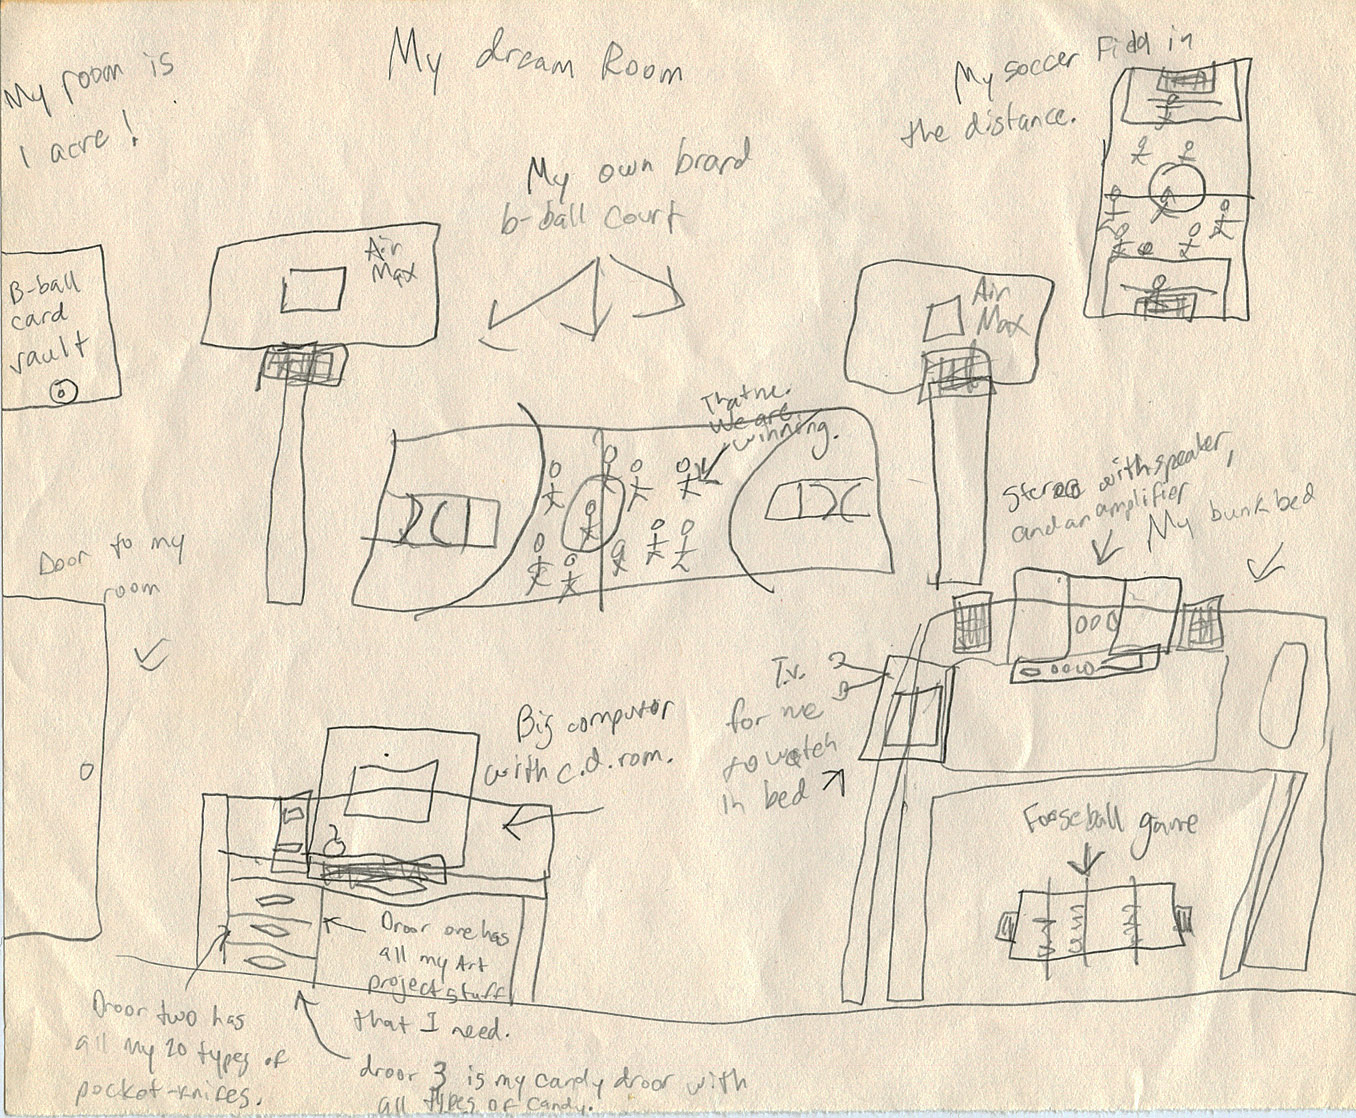 My dream Room
My room is
1 acre!
My soccer Field in
the distance.
My own brard
b-ball court
Air
Max
Air
Max
B-ball
card
vault
That me.
We are
winning.
Stereo with speaker,
and an amplifier
My bunk bed
Door to my
room
T.v.
for me
to watch
in bed
Big computor
with c.d. rom.
Fooseball game
Droor one has
all my Art
project stuff
that I need.
Droor two has
all my 20 types of
pocket-knifes.
droor 3 is my candy droor with
all types of candy.